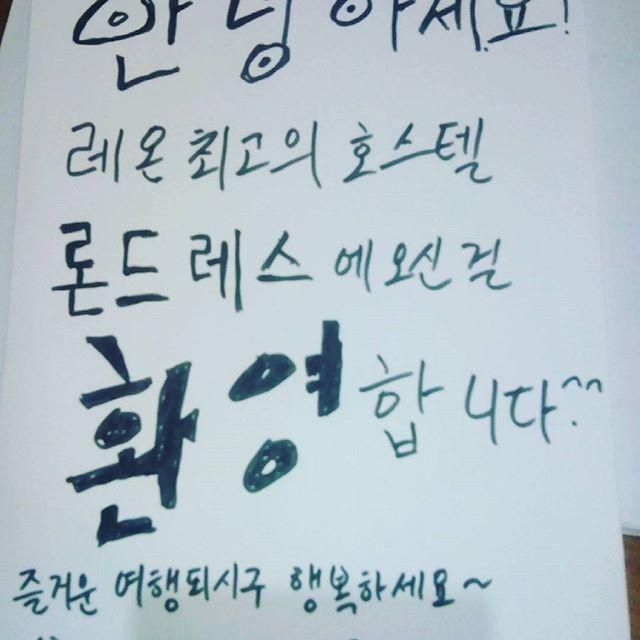 안녕하세요!
레온 최고의 호스텔
론드레스에 오신 걸
환영합니다.^^
즐거운 여행되시구 행복하세요~